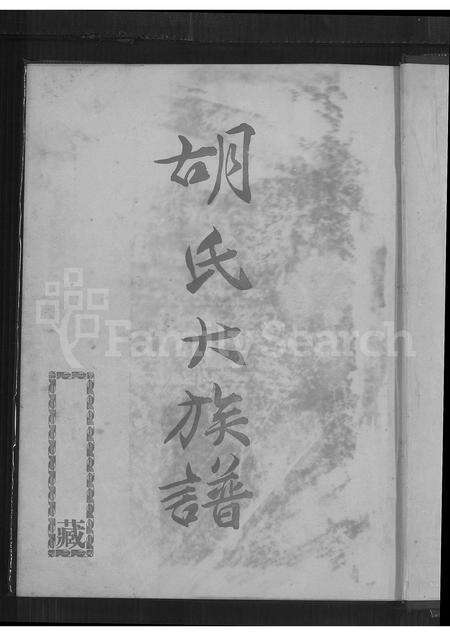 胡氏大族譜
藏
FamilySearch